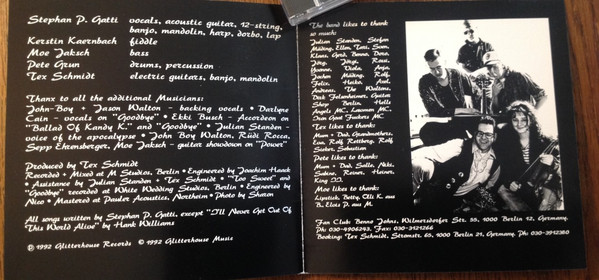 Stephan P. Gatti vocals, acoustic guitar, 12-string,
banjo, mandolin, harp, dorbo, lap
Kerstin Kaernbach fiddle
Moe Jaksch bass
Pete Grun drums, percussion
Tex Schmidt electric guitars, banjo, mandolin
Thanx to all the additional Musicians:
John-Boy • Jason Walton - backing vocals • Darlyne
Cain - vocals on "Goodbye" • Ekki Busch - Accordeon on
"Ballad Of Kandy K." and "Goodbye" • Julian Standen -
voice of the apocalypse • John Boy Walton, Rüdi Rocca,
Sepp Ehrensberger, Moe Jaksch - guitar showdown on "Power"
Produced by Tex Schmidt
Recorded + Mixed at M Studios, Berlin • Engineered by Joachim Hauck
• Assistance by Julian Standen • Tex Schmidt • "Too Sweet" and
"Goodbye" recorded at White Wedding Studios, Berlin • Engineered by
Nico • Mastered at Pauler Acoustics, Northeim • Photo by Sharon
All songs written by Stephan P. Gatti, except "I'll Never Get Out Of
This World Alive" by Hank Williams
℗ 1992 Glitterhouse Records © 1992 Glitterhouse Music
The band likes to thank
so much:
Julian Standen, Stefan
Mäding, Ellen, Tati, Sam,
Klaus, Gerd, Benno, Dora,
Jörg, Jürgi, Rausi,
Yvonne, Viola, Anja,
Jochen Mäding, Rolf,
Felix, Heike, Axel,
Andreas, The Waltons,
Dirk Felsenheimer, Guitar
Shop Berlin, Hells
Angels MC,
MC
Tex likes to thank:
Mum + Dad, Grandmothers,
Eva, Rolf Rettberg, Rolf
Sieber, Sebastian
Pete likes to thank:
Mum + Dad, Salle, Niki,
Sabine, Reiner, Heiner,
King
Moe likes to thank:
Lipstick, Betty, Olli K. aus
B., Elvis P. aus M.
Fan Club: Benno Johns, Wilmersdorfer Str. 55, 1000 Berlin 12, Germany.
Ph 030-4906243. Fax: 030-3121266
Booking: Tex Schmidt, Stromstr. 65, 1000 Berlin 21, Germany. Ph 030-3912380